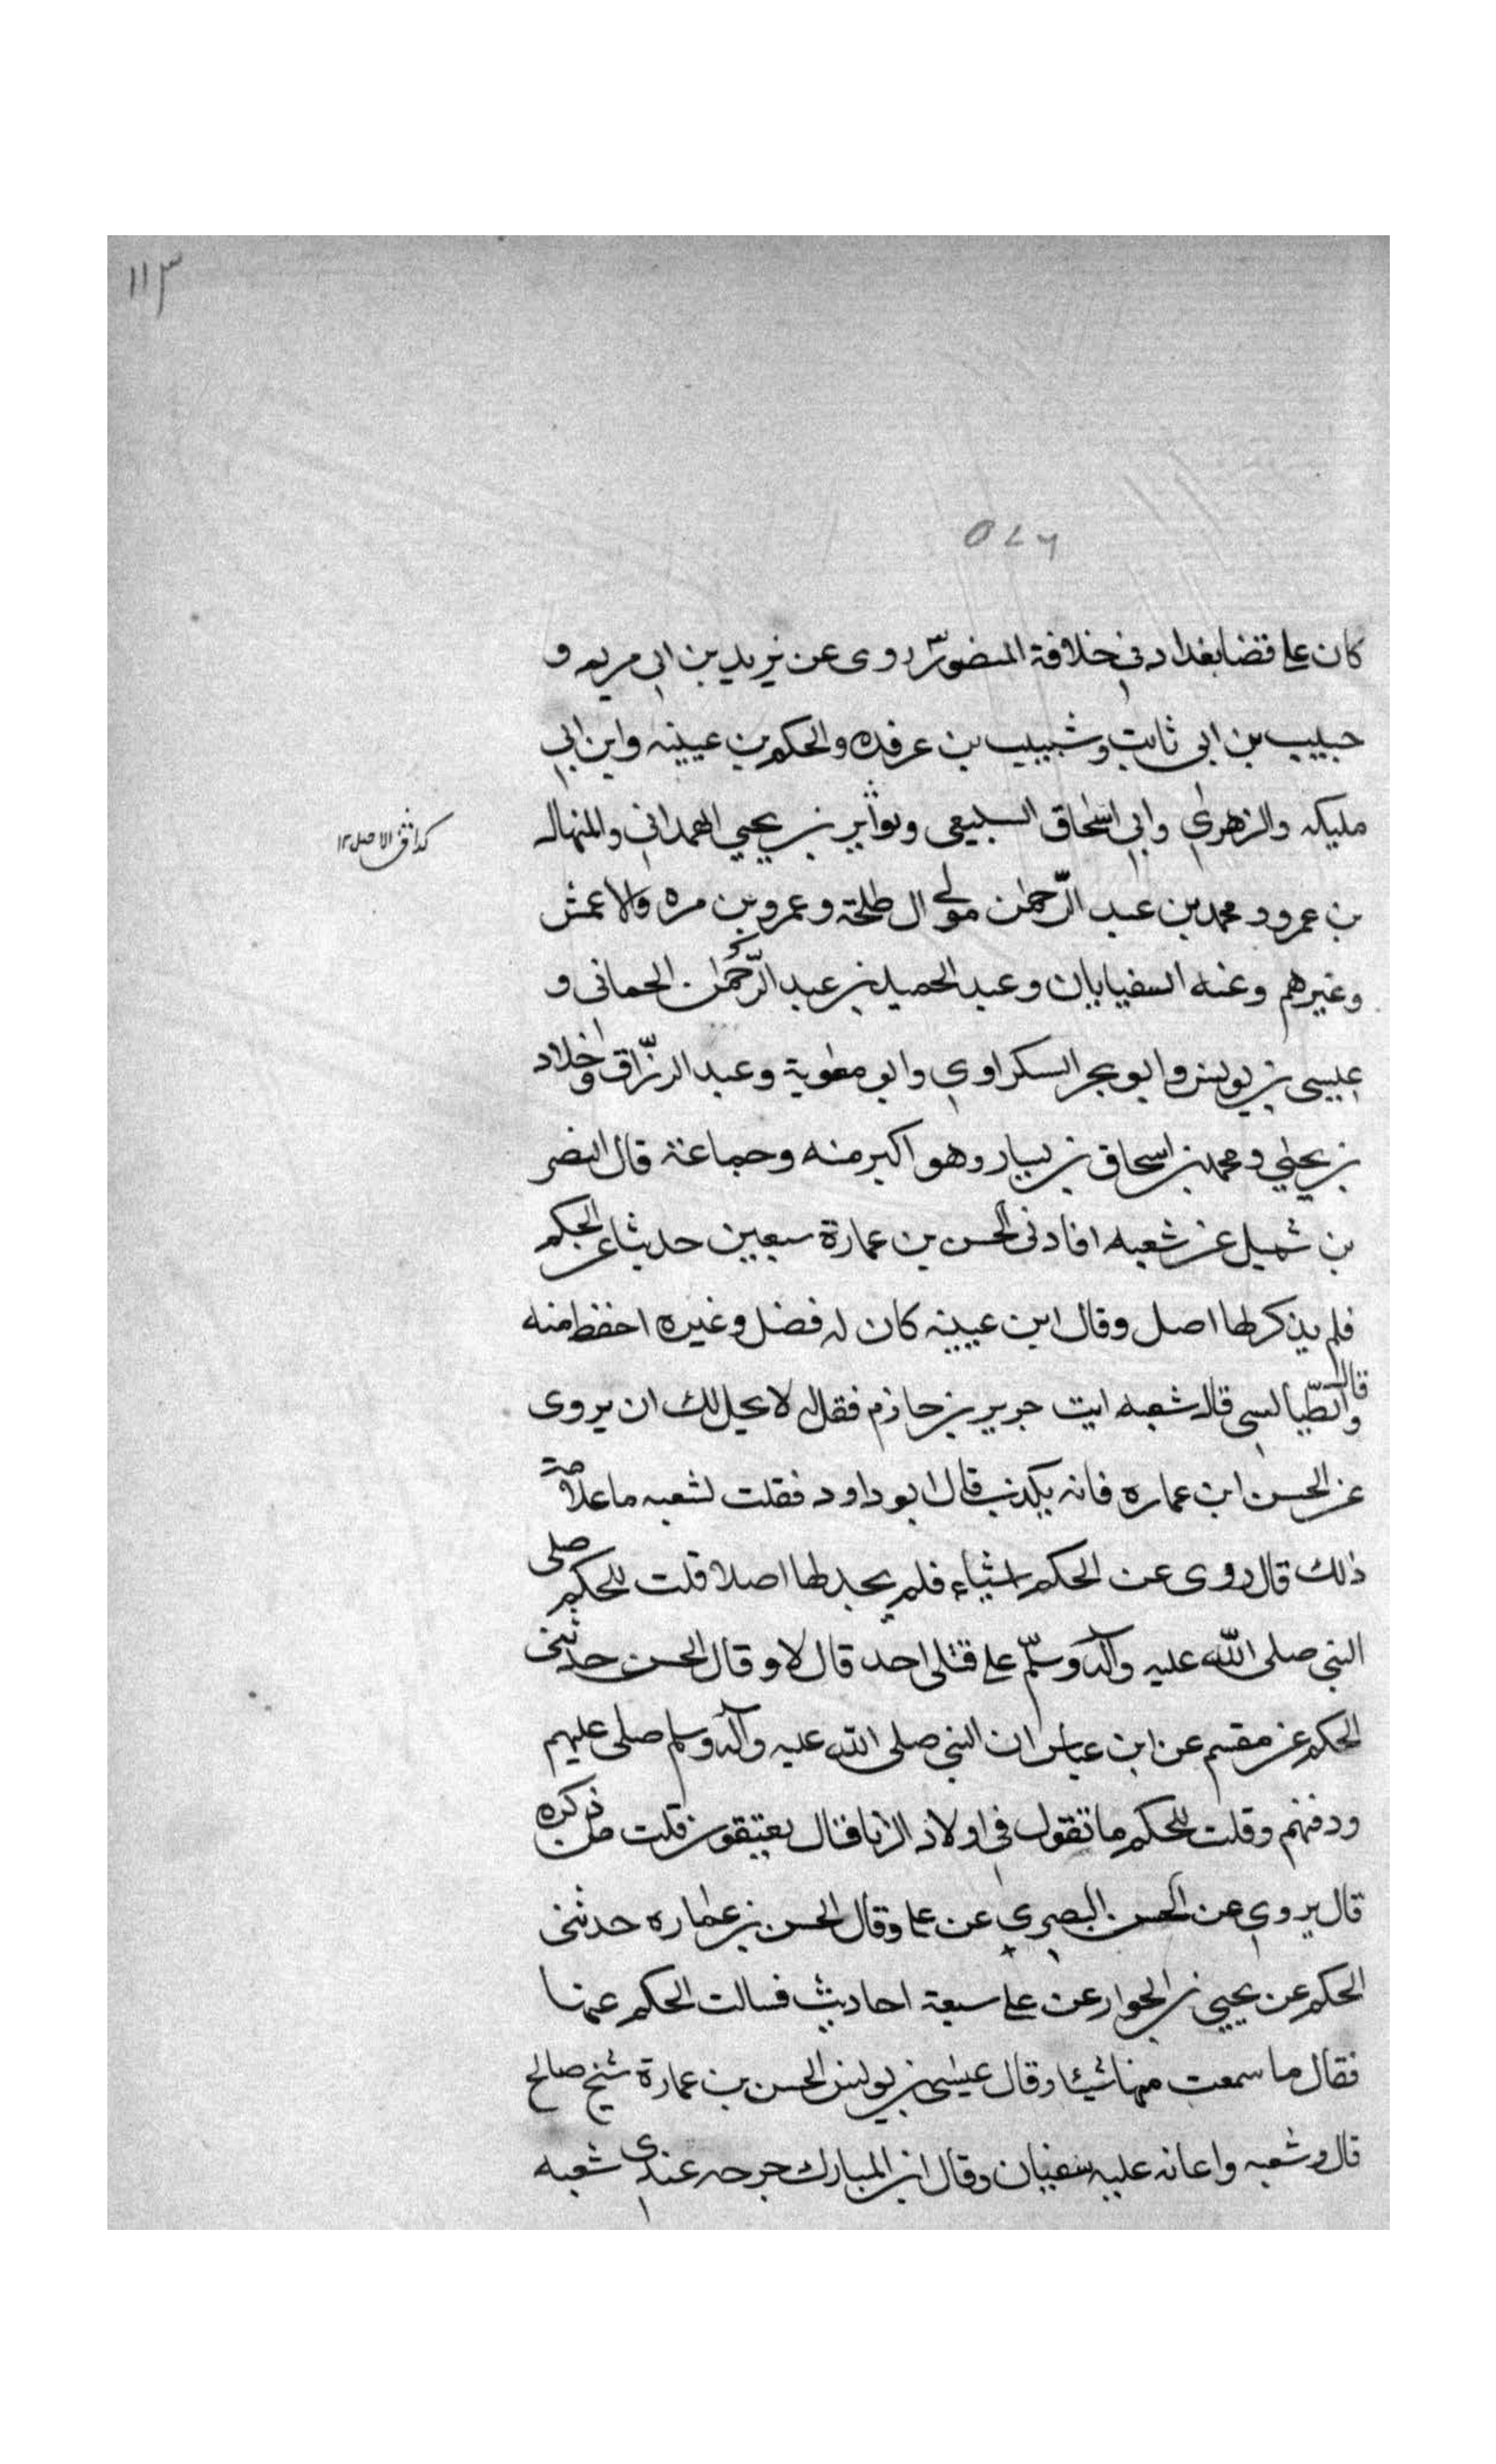 ١١٣
٥٧٦
كان على قضا بغداد في خلافة المنصور روى عن يزيد بن ابي مريم و
حبيب بن ابي ثابت وشبيب بن عرفده والحكم بن عيينه وابن ابي
مليكه والزهري وابي اسحاق السبيعى وتواثير بن يحيي الهمداني والمنهال
كذا في الاصل ١٢
بن عمرو و محمد بن عبد الرّحمن مولى ال طلحة وعمرو بن مره والاعمش
وغيرهم وعنه السفيايان وعبد الحميد بن عبد الرّحمن الحماني و
عيسى بن يونس وابو بحر السكراوي وابو معوية وعبد الرزّاق وخلاد
بن يحيي ومحمد بن اسحاق بن يسار وهو اكبر منه وجماعة قال النضر
بن شميل عن شعبه افادنى الحسن بن عمارة سبعين حديثا عن الحكم
فلم يذكر لها اصل وقال ابن عيينه كان له فضل وغيره احفظ منه
وقال الطّيالسى قال شعبه ايت جرير بن حازم فقال لا يحل لك ان يروى
عن الحسن ابن عماره فانه يكذب قال ابو داود فقلت لشعبه ما علامة
ذلك قال روى عن الحكم اشياء فلم يجد لها اصلا قلت للحكم صلى
النبي صلى الله عليه وآله وسلّم على قتلى احد قال لا وقال الحسن حدثنى
الحكم عن مقسم عن ابن عباس ان النبي صلى الله عليه وآله وسلم صلى عليهم
ودفنهم وقلت للحكم ما تقول في اولاد الزنا قال يعتقون قلت من ذكره
قال يروي عن الحسن البصري عن على وقال الحسن بن عماره حدثنى
الحكم عن يحيي بن الجوار عن على سبعة احاديث فسالت الحكم عنها
فقال ما سمعت منها شيئا وقال عيسى بن يونس الحسن بن عمارة شيخ صالح
قال وشعبه واعانه عليه سفيان وقال ابن المبارك جرحه عندي شعبه